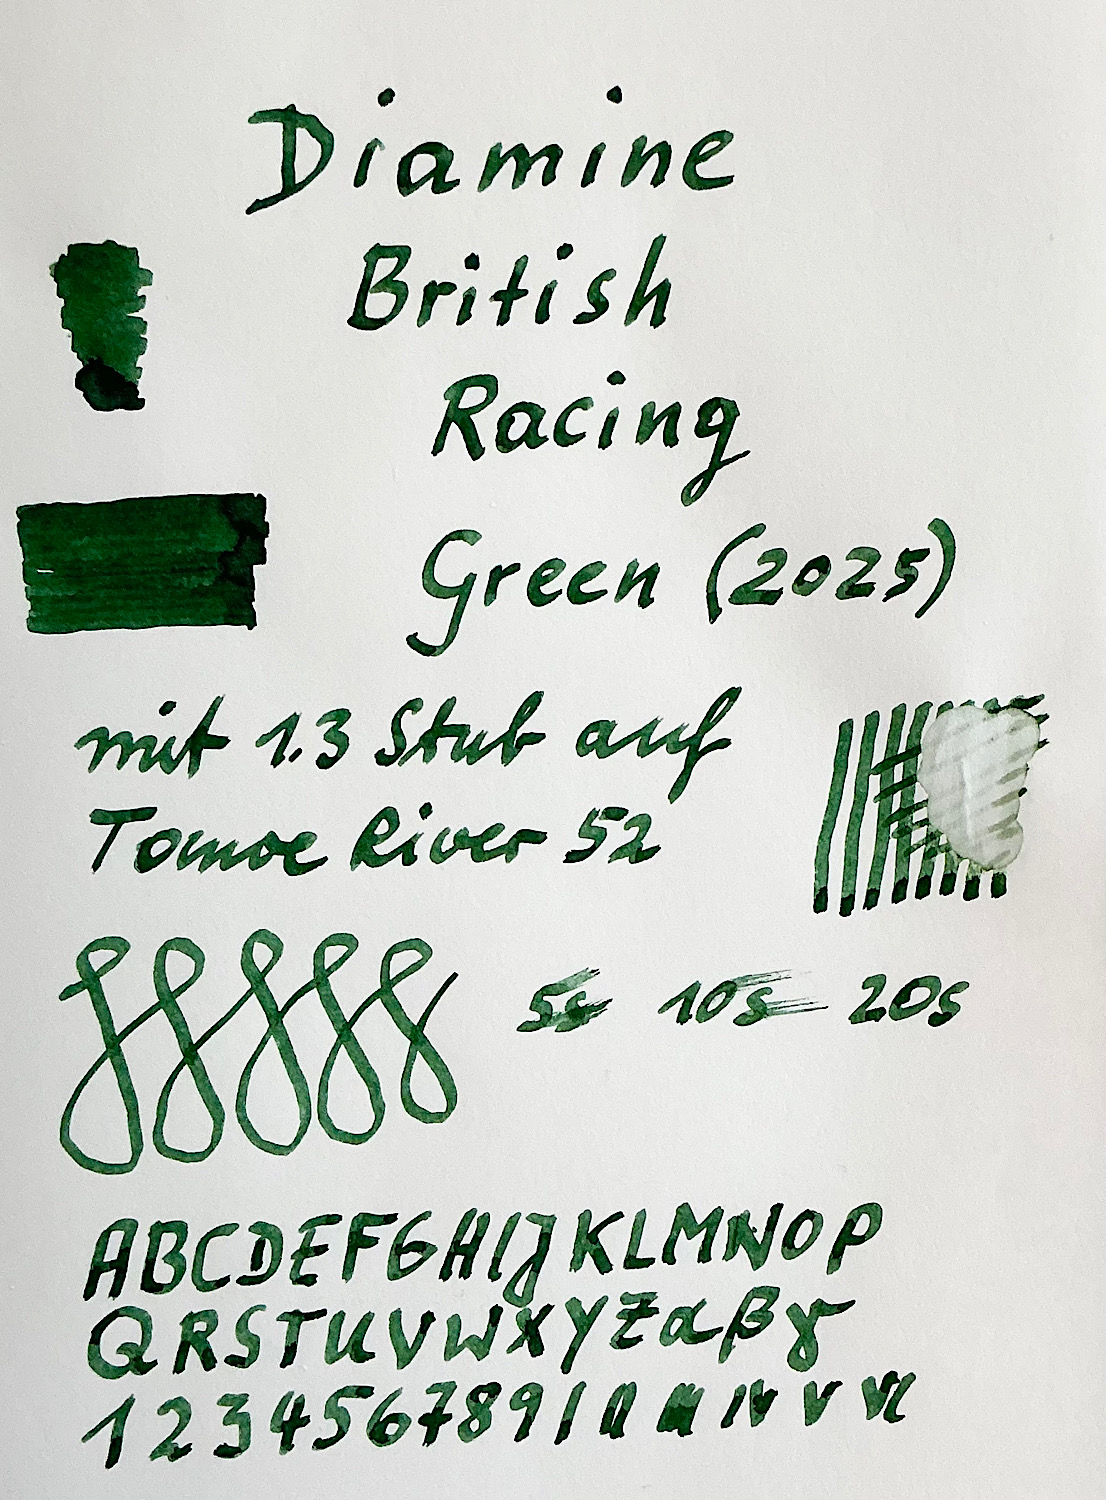 Diamine
British
Racing
Green (2025)
mit 1.3 Stub auf
Tomoe River 52
5s 10s 20s
ABCDEFGHIJKLMNOP
QRSTUVWXYZαβγ
123456789 I II III IV V VI